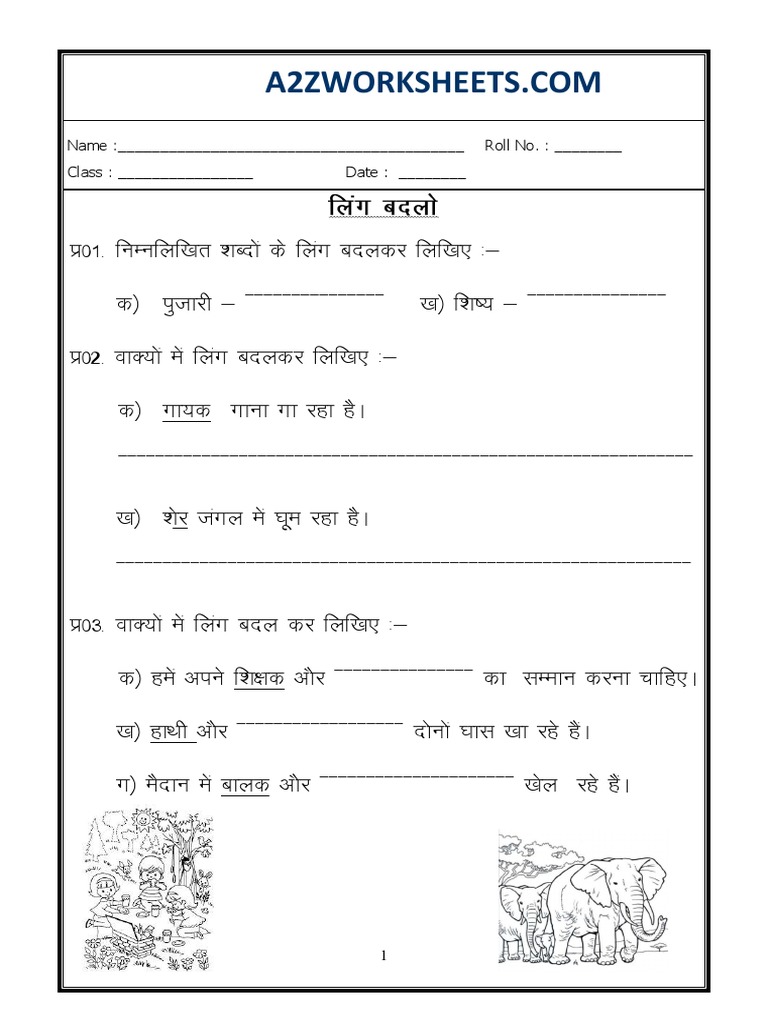 A2ZWORKSHEETS.COM
Name :__________________________________________ Roll No. : ________
Class : ________________ Date : ________
लिंग बदलो
प्र01. निम्नलिखित शब्दों के लिंग बदलकर लिखिए :–
क) पुजारी – _______________ ख) शिष्य – _______________
प्र02. वाक्यों में लिंग बदलकर लिखिए :–
क) गायक गाना गा रहा है।
______________________________________________________________
ख) शेर जंगल में घूम रहा है।
______________________________________________________________
प्र03. वाक्यों में लिंग बदल कर लिखिए :–
क) हमें अपने शिक्षक और _______________ का सम्मान करना चाहिए।
ख) हाथी और __________________ दोनों घास खा रहे हैं।
ग) मैदान में बालक और _____________________ खेल रहे हैं।
1